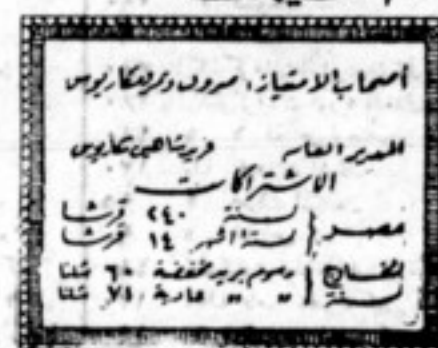 أصحاب الامتياز، صروف ونمر ومكاريوس
المدير العام فريد شاهين مكاريوس
الاشتراكات
مصر سنة ٢٤٠ قرشا
لستة اشهر ١٤ قرشا
الخارج رسوم بريد مخفضة ٦٠ شلنا
سنة " " عادية ٧١ شلنا